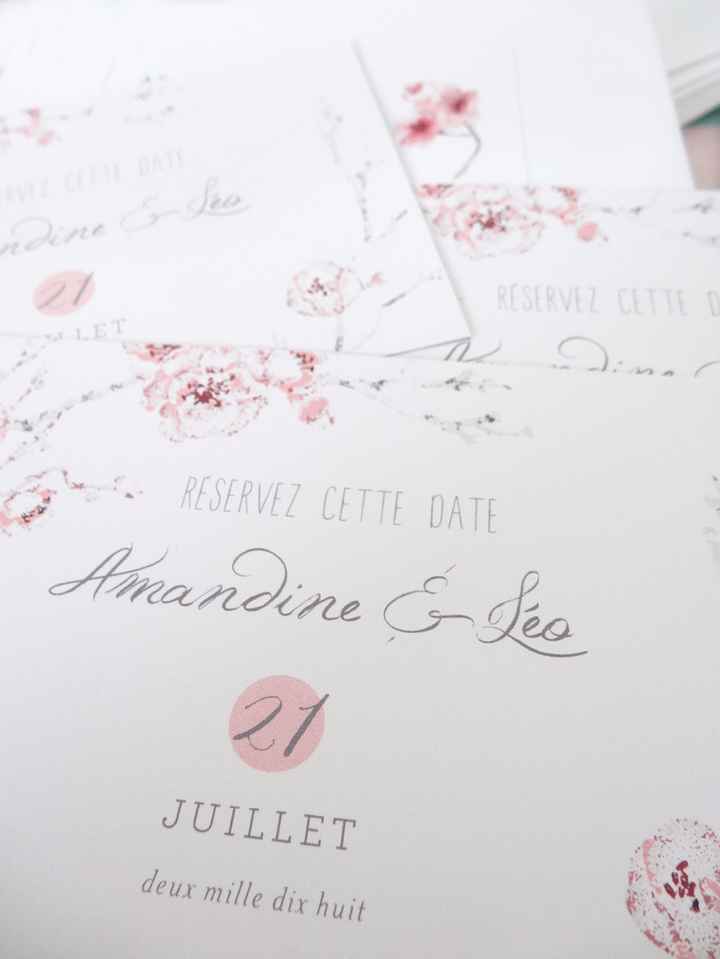 CETTE DATE
& Léo
21
RÉSERVEZ CETTE
RÉSERVEZ CETTE DATE
Amandine & Léo
21
JUILLET
deux mille dix huit